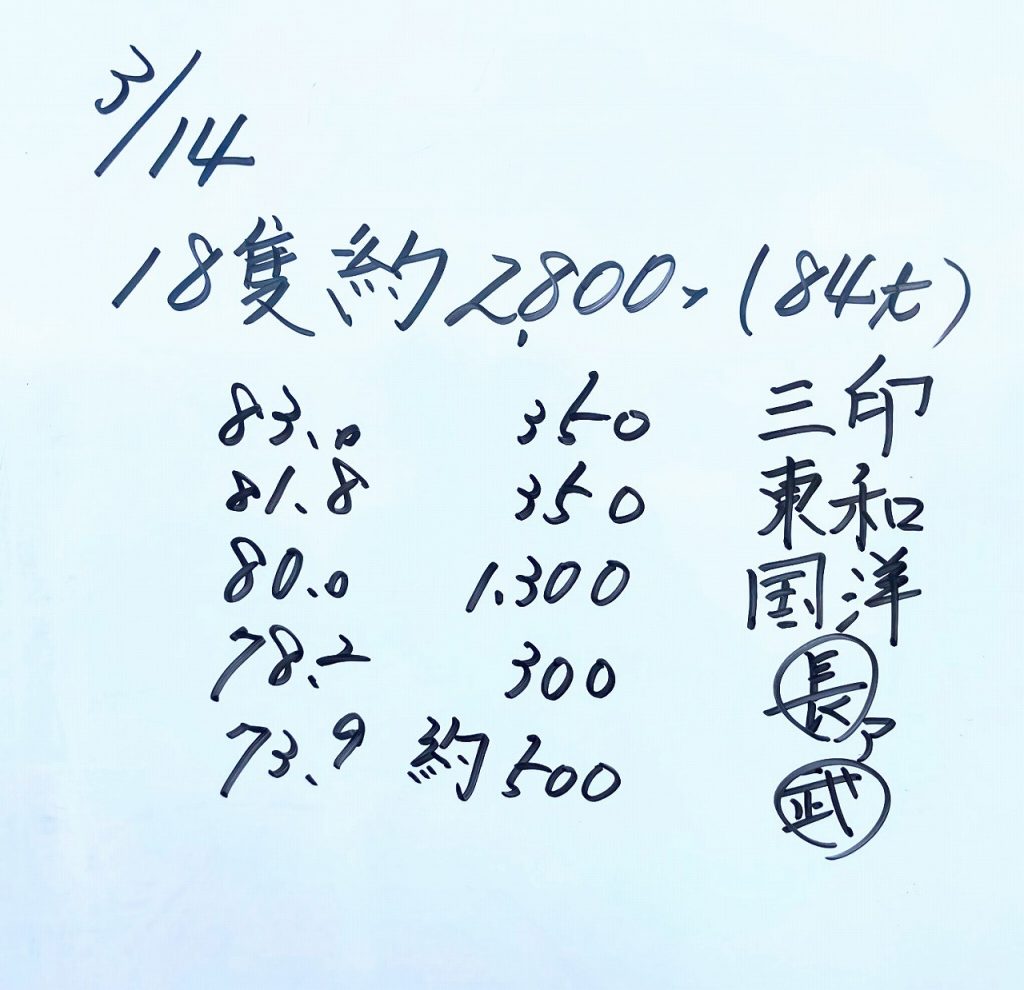 3/14
18隻 約2,800、(84t)
83.0 350 三印
81.8 350 東和
80.0 1.300 国洋
78.2 300 長了
73.9 約500 武